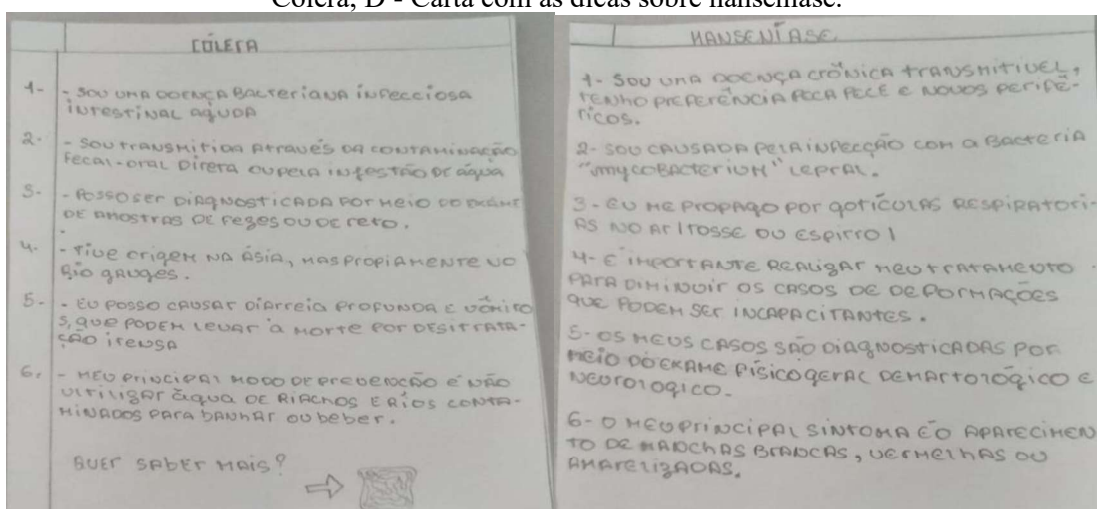 Cólera, D - Carta com as dicas sobre hanseníase.
CÓLERA
1- - SOU UMA DOENÇA BACTERIANA INFECCIOSA
INTESTINAL AGUDA
2. - SOU TRANSMITIDA ATRAVÉS DA CONTAMINAÇÃO
FECAL-ORAL DIRETA OU PELA INGESTÃO DE ÁGUA
3. - POSSO SER DIAGNOSTICADA POR MEIO DO EXAME
DE AMOSTRAS DE FEZES OU DE RETO.
4. - TIVE ORIGEM NA ÁSIA, MAS PROPIAMENTE NO
RIO GANGES.
5- - EU POSSO CAUSAR DIARREIA PROFUNDA E VÔMITO
S, QUE PODEM LEVAR À MORTE POR DESITRATA-
ÇÃO ITENSA
6. - MEU PRINCIPAL MODO DE PREVENÇÃO É NÃO
UTILIZAR ÁGUA DE RIACHOS E RIOS CONTA-
MINADOS PARA BANHAR OU BEBER.
QUER SABER MAIS?
HANSENÍASE
1- SOU UMA DOENÇA CRÔNICA TRANSMITIVEL,
TENHO PREFERÊNCIA PECA PELE E NOVOS PERIFÉ-
RICOS.
2- SOU CAUSADA PELA INFECÇÃO COM A BACTERIA
"MYCOBACTERIUM" LEPRAL.
3- EU ME PROPAGO POR GOTÍCULAS RESPIRATORI-
AS NO AR (TOSSE OU ESPIRRO)
4- É IMPORTANTE REALIZAR MEU TRATAMENTO
PARA DIMINUIR OS CASOS DE DEFORMAÇÕES
QUE PODEM SER INCAPACITANTES.
5- OS MEUS CASOS SÃO DIAGNOSTICADAS POR
MEIO DO EXAME FÍSICO GERAL DEMARTOLÓGICO E
NEUROLOGICO.
6- O MEU PRINCIPAL SINTOMA É O APARECIMEN
TO DE MANCHAS BRANCAS, VERMELHAS OU
AMARELIZADAS.